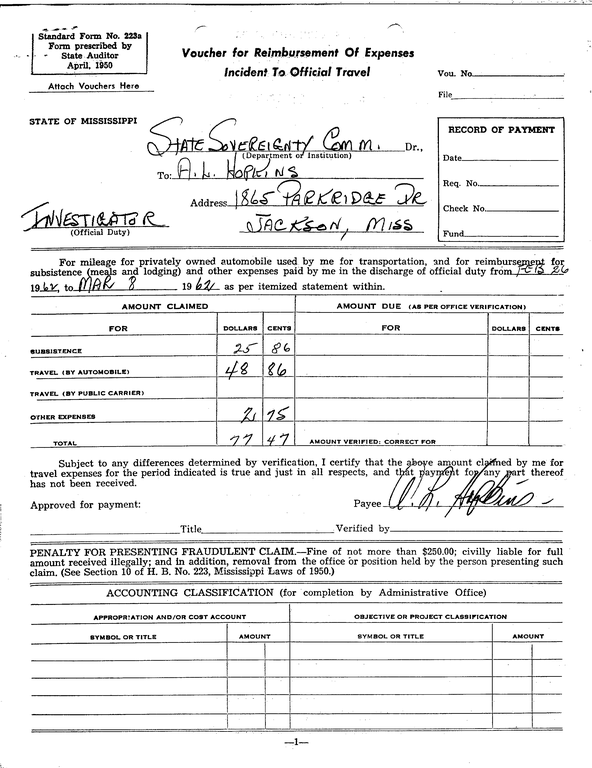 Standard Form No. 223a
Form prescribed by
State Auditor
April, 1950
Attach Vouchers Here
Voucher for Reimbursement Of Expenses
Incident To Official Travel
Vou. No.
File
STATE OF MISSISSIPPI
STATE SOVEREIGNTY COMM. Dr.,
(Department or Institution)
To: A. L. HOPKINS
Address 1865 PARKRIDGE DR
JACKSON, MISS
INVESTIGATOR
(Official Duty)
RECORD OF PAYMENT
Date
Req. No.
Check No.
Fund
For mileage for privately owned automobile used by me for transportation, and for reimbursement for
subsistence (meals and lodging) and other expenses paid by me in the discharge of official duty from FEB 26
1962, to MAR 8 1962 as per itemized statement within.
AMOUNT CLAIMED AMOUNT DUE (AS PER OFFICE VERIFICATION)
FOR DOLLARS CENTS FOR DOLLARS CENTS
SUBSISTENCE 25 86
TRAVEL (BY AUTOMOBILE) 48 86
TRAVEL (BY PUBLIC CARRIER)
OTHER EXPENSES 2 75
TOTAL 77 47 AMOUNT VERIFIED: CORRECT FOR
Subject to any differences determined by verification, I certify that the above amount claimed by me for
travel expenses for the period indicated is true and just in all respects, and that payment for any part thereof
has not been received.
Approved for payment: Payee A. L. Hopkins
Title Verified by
PENALTY FOR PRESENTING FRAUDULENT CLAIM.—Fine of not more than $250.00; civilly liable for full
amount received illegally; and in addition, removal from the office or position held by the person presenting such
claim. (See Section 10 of H. B. No. 223, Mississippi Laws of 1950.)
ACCOUNTING CLASSIFICATION (for completion by Administrative Office)
APPROPRIATION AND/OR COST ACCOUNT OBJECTIVE OR PROJECT CLASSIFICATION
SYMBOL OR TITLE AMOUNT SYMBOL OR TITLE AMOUNT
—1—